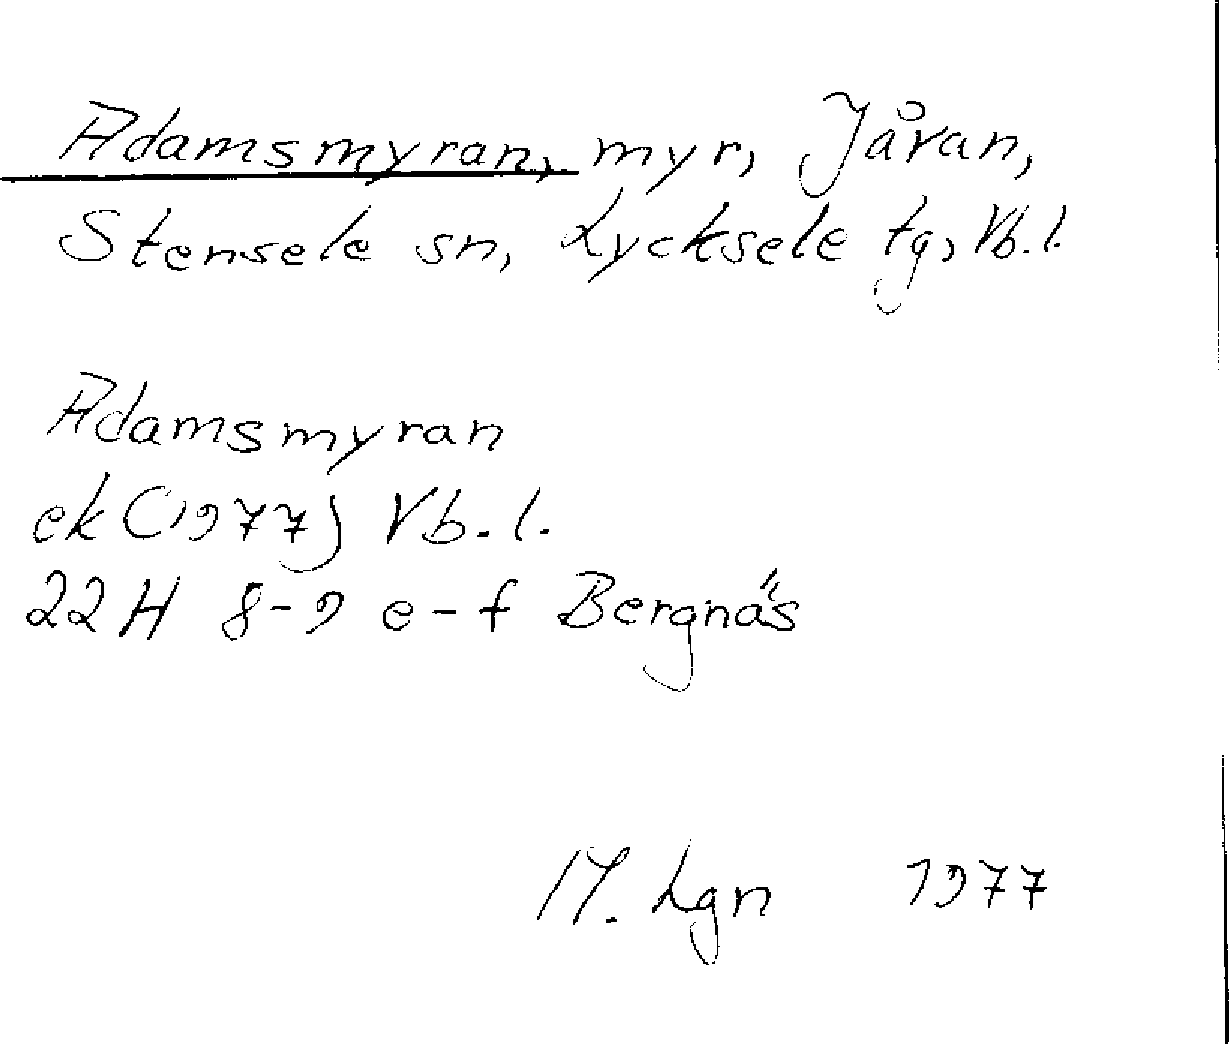 Adamsmyran, myr, Jåran,
Stensele sn, Lycksele tg, Vb.l.
Adamsmyran
ek (1977) Vb.l.
22H 8-9 e-f Bergnäs
M. Lgn 1977